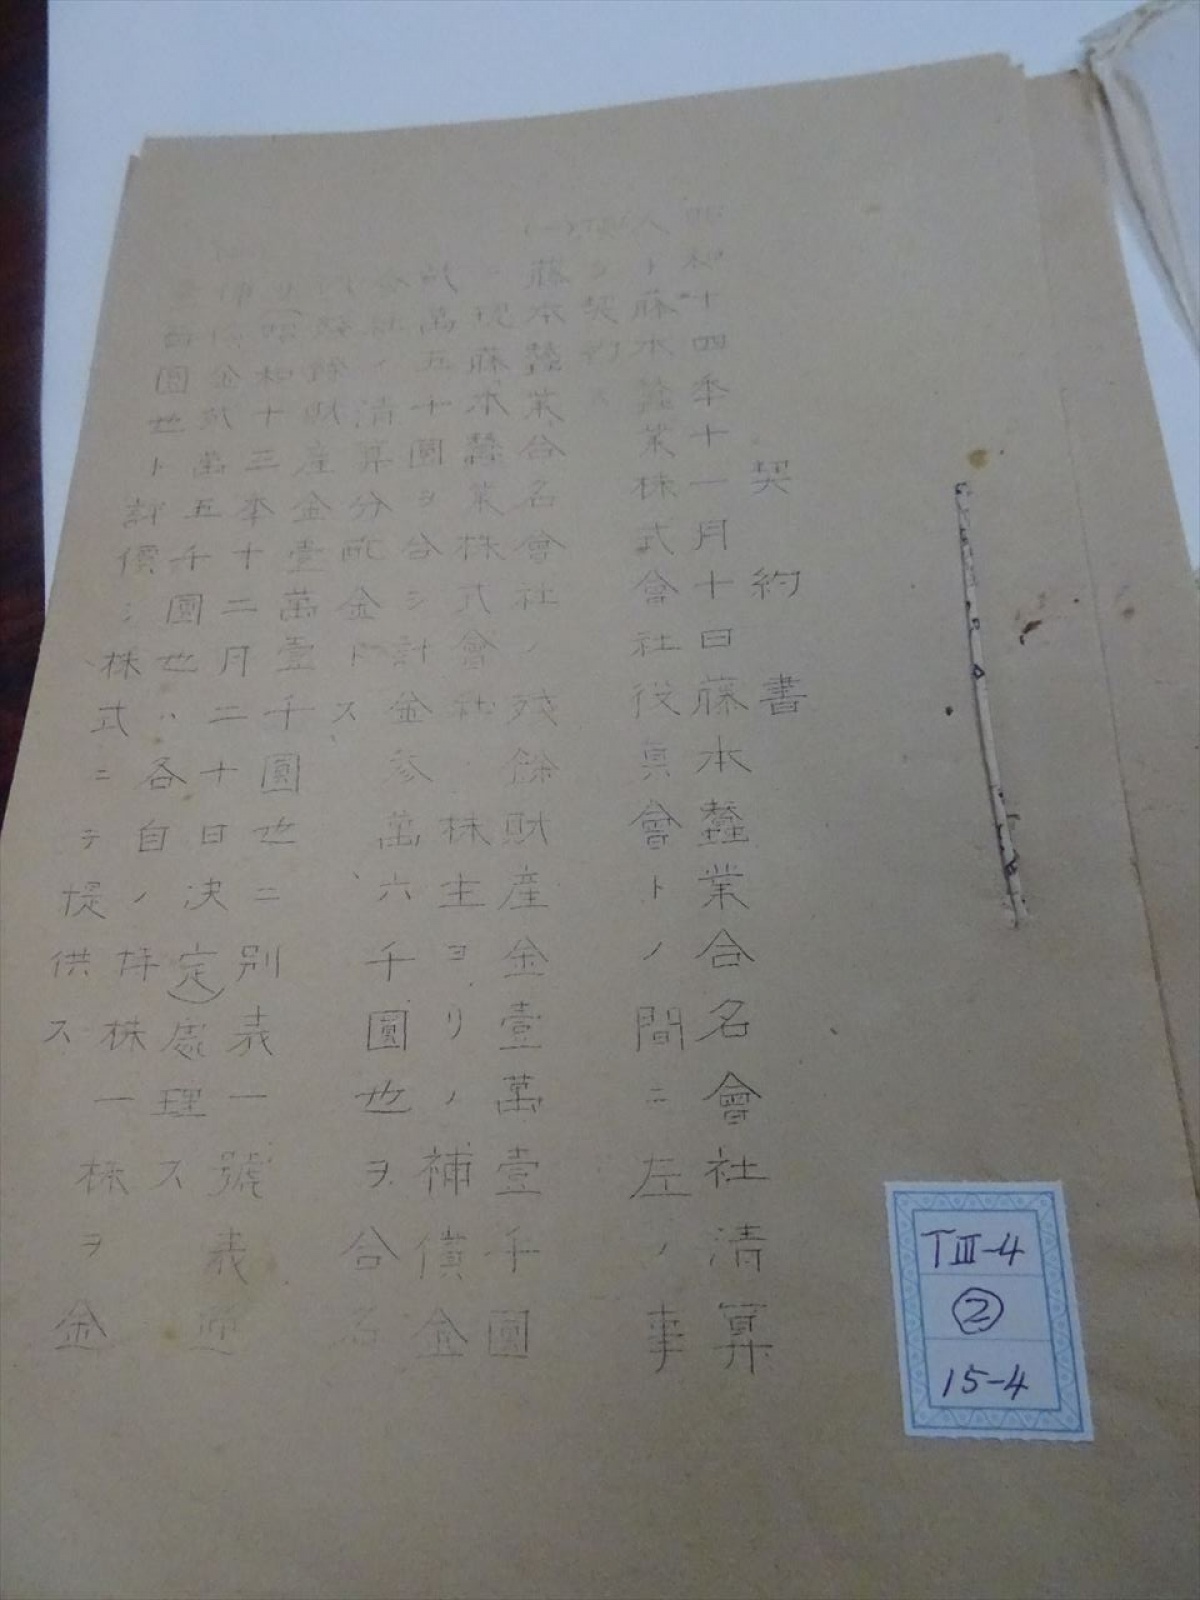 契約書
昭和十四年十一月十日藤本蠶業合名會社清算
人ト藤本蠶業株式會社役員會トノ間ニ左ノ事
契約ス
(一)藤本蠶業合名會社ノ残餘財産金壹萬壹千圓
ニ現藤本蠶業株式會社株主ヨリノ補償金
萬五千圓ヲ合シ計金参萬六千圓也ヲ合名
會社ノ清算分配金トス
残餘財産金壹萬壹千圓也ニ別表一號表
(昭和十三年十二月二十日決定)處理ス
金貳萬五千圓也ハ各自ノ持株一株ヲ金
圓也ト評價シ株式ニテ提供ス
TⅢ-4
②
15-4